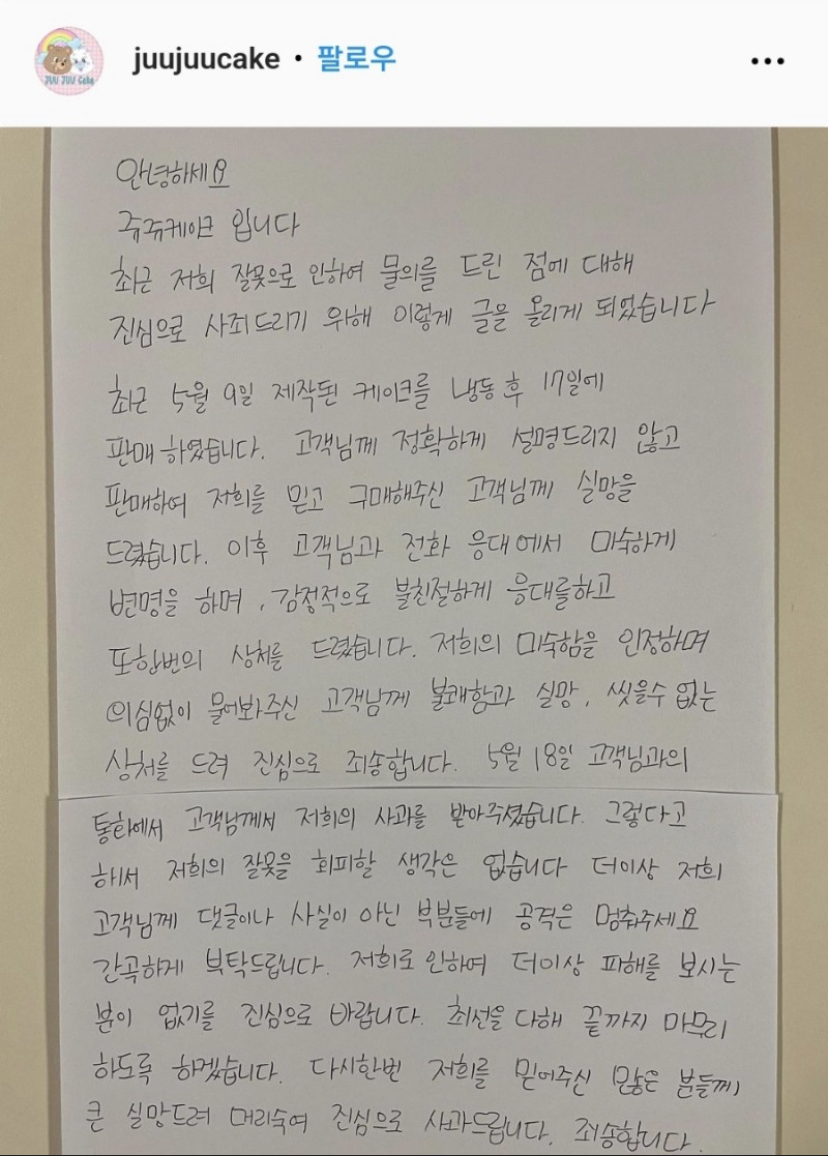 juujuucake • 팔로우
JUU JUU Cake
안녕하세요
쥬쥬케이크 입니다
최근 저희 잘못으로 인하여 물의를 드린 점에 대해
진심으로 사죄드리기 위해 이렇게 글을 올리게 되었습니다
최근 5월 9일 제작된 케이크를 냉동 후 17일에
판매 하였습니다. 고객님께 정확하게 설명드리지 않고
판매하여 저희를 믿고 구매해주신 고객님께 실망을
드렸습니다. 이후 고객님과 전화 응대에서 미숙하게
변명을 하며, 감정적으로 불친절하게 응대를하고
또한번의 상처를 드렸습니다. 저희의 미숙함을 인정하며
의심없이 물어봐주신 고객님께 불쾌함과 실망, 씻을수 없는
상처를 드려 진심으로 죄송합니다. 5월 18일 고객님과의
통화에서 고객님께서 저희의 사과를 받아주셨습니다. 그렇다고
해서 저희의 잘못을 회피할 생각은 없습니다 더이상 저희
고객님께 댓글이나 사실이 아닌 부분들에 공격은 멈춰주세요
간곡하게 부탁드립니다. 저희로 인하여 더이상 피해를 보시는
분이 없기를 진심으로 바랍니다. 최선을 다해 끝까지 마무리
하도록 하겠습니다. 다시한번 저희를 믿어주신 많은 분들께
큰 실망드려 머리숙여 진심으로 사과드립니다. 죄송합니다.